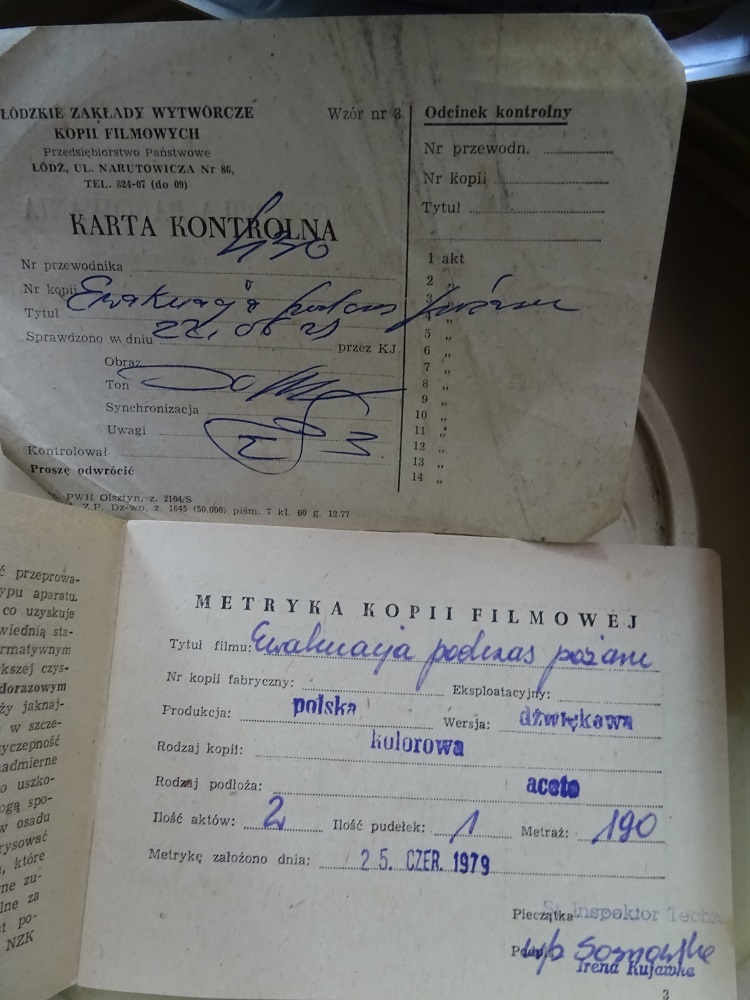 ŁÓDZKIE ZAKŁADY WYTWÓRCZE
KOPII FILMOWYCH
Przedsiębiorstwo Państwowe
ŁÓDŹ, UL. NARUTOWICZA Nr 86,
TEL. 824-07 (do 09)
Wzór nr 3
KARTA KONTROLNA
430
Nr przewodnika
Nr kopii
Tytuł Ewakuacja podczas pożaru
Sprawdzono w dniu 22.06
przez KJ
Obraz
Ton
Synchronizacja
Uwagi
Kontrolował
Proszę odwrócić
PWH Olsztyn, z. 2104/S
Z.P. Dz-wo, z. 1645 (50.000) piśm. 7 kl. 60 g. 12.77
Odcinek kontrolny
Nr przewodn.
Nr kopii
Tytuł
1 akt
2 „
3 „
4 „
5 „
6 „
7 „
8 „
9 „
10 „
11 „
12 „
13 „
14 „
ć przeprowa-
ypu aparatu.
co uzyskuje
wiednią sta-
rmatywnym
kszej czys-
dorazowym
ży jaknaj-
w szcze-
yczepność
nadmierne
o uszko-
ogą spo-
w osadu
rysować
, które
ne zu-
lne za
t po-
NZK
METRYKA KOPII FILMOWEJ
Tytuł filmu: Ewakuacja podczas pożaru
Nr kopii fabryczny: Eksploatacyjny:
Produkcja: polska Wersja: dźwiękowa
Rodzaj kopii: kolorowa
Rodzaj podłoża: aceto
Ilość aktów: 2 Ilość pudełek: 1 Metraż: 190
Metrykę założono dnia: 25. CZER. 1979
Pieczątka St. Inspektor Techn
Podpis w/z Sosnowska
Irena Kujawka
3